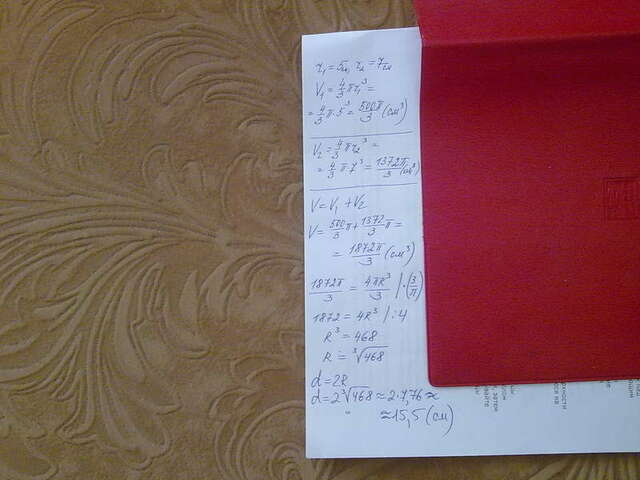 r₁ = 5см, r₂ = 7см
V₁ = 4/3 πr₁³ =
= 4/3 π·5³ = 500π/3 (см³)
V₂ = 4/3 πr₂³ =
= 4/3 π·7³ = 1372π/3 (см³)
V = V₁ + V₂
V = 500/3 π + 1372/3 π =
= 1872π/3 (см³)
1872π/3 = 4πR³/3 | ·(3/π)
1872 = 4R³ | :4
R³ = 468
R = ³√468
d = 2R
d = 2³√468 ≈ 2·7,76 ≈
≈ 15,5 (см)